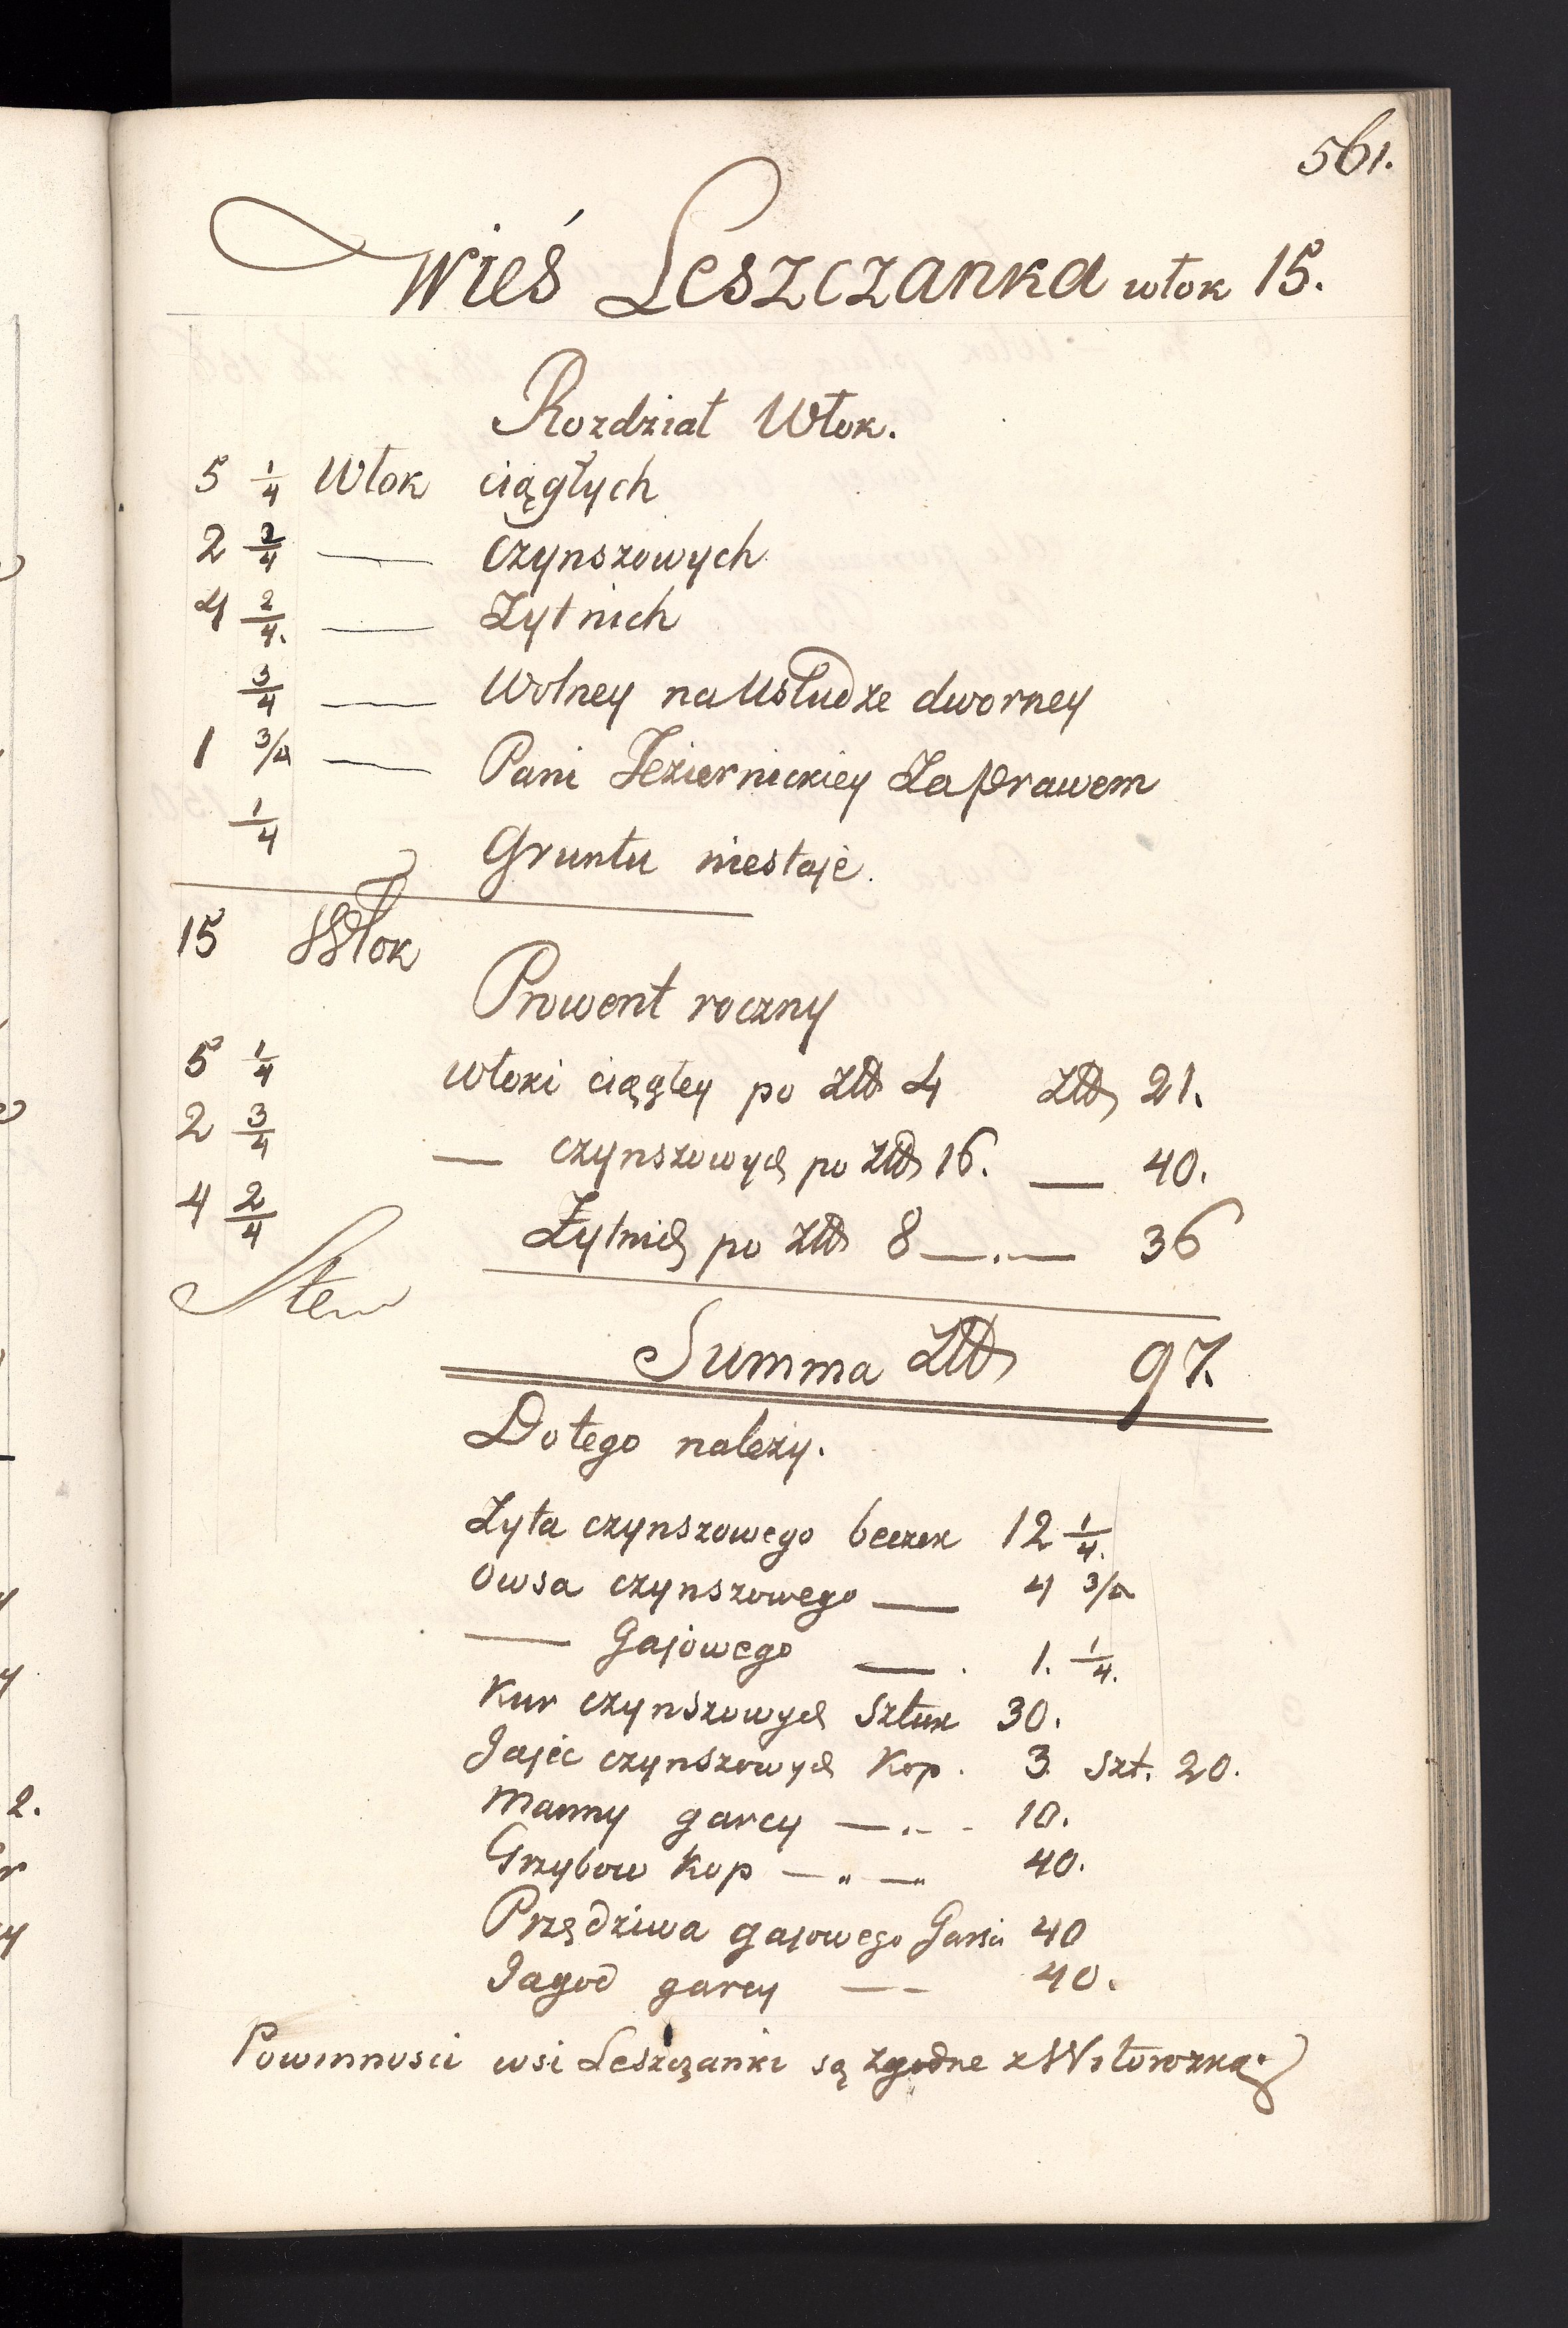 561.
Wieś Leszczanka włok 15.
Rozdział Włok.
5 1/4 Włok ciągłych
2 2/4 — czynszowych
4 2/4. — Żytnich
3/4 — Wolney na Usłudze dworney
1 3/4 — Pani Jeziernickiey Za prawem
1/4 Gruntu niestaje.
15 Włok
Prowent roczny
5 1/4 włoki ciągłey po Złł 4 Złł 21.
2 3/4 — czynszowych po Złł 16. — 40.
4 2/4 Żytnich po Złł 8 —.— 36
Summa Złł 97.
Do tego należy.
Żyta czynszowego beczek 12 1/4.
Owsa czynszowego — 4 3/4
— Gajowego — . 1. 1/4.
Kur czynszowych Sztuk 30.
Jajec czynszowych Kop. 3. Szt. 20.
Manny garcy —..- 10.
Grzybow Kop —„— 40.
Przędziwa gajowego 40
Jagod garcy — 40.
Powinnosci wsi Leszczanki są zgodne z Witorozką.